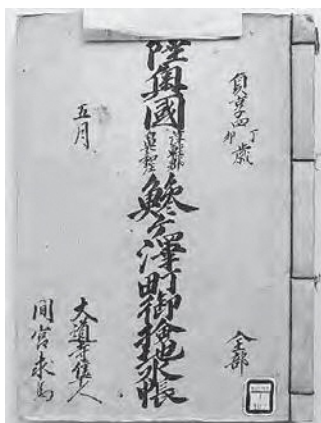 貞享四丁卯歳
全部
陸奥國津軽郡鰺ヶ澤町御檢地水帳
五月
大道寺隼人
間宮求馬